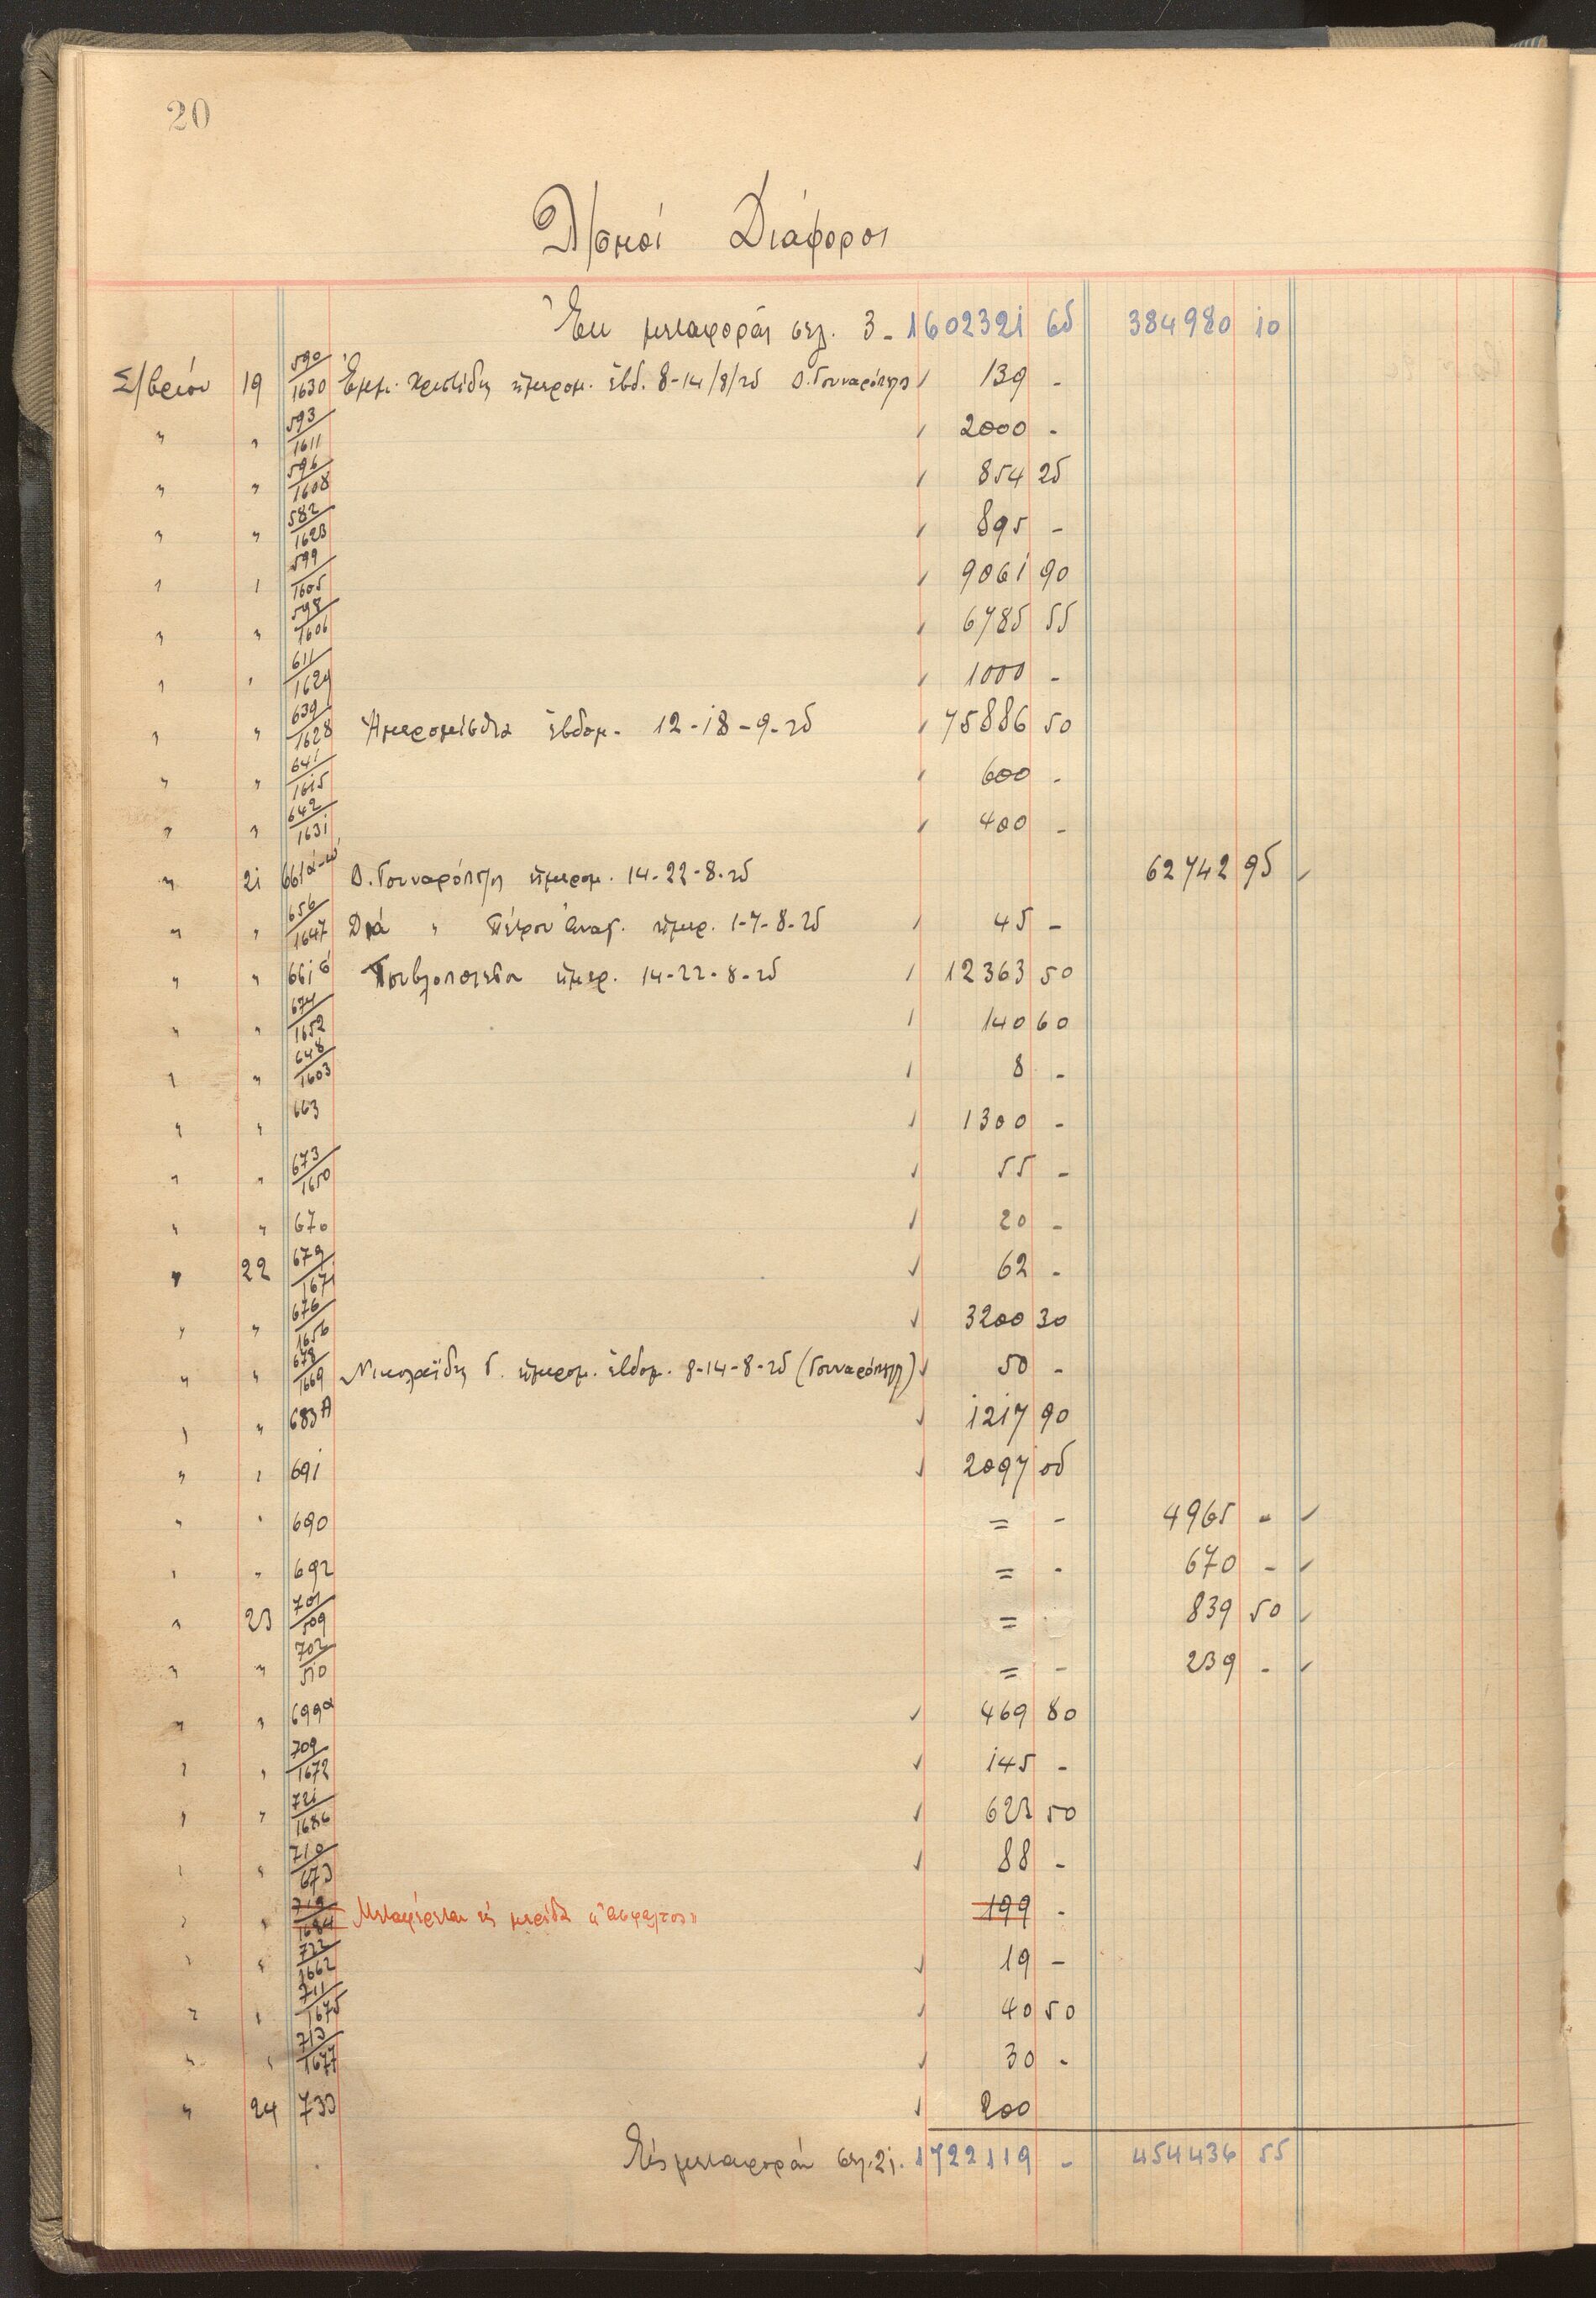 20
Λ/σμοί Διάφοροι
Ἐκ μεταφορᾶς σελ. 3 - 1602321 65 384980 10
Σ/βρίου 19 590/1630 Ἐμμ. Χρηστίδης ἡμερομ. ἑβδ. 8-14/8/25 Δ. Γουναρόπουλος 139 -
" " 593/1611 2000 -
" " 596/1608 854 25
" " 582/1623 895 -
" " 599/1605 9061 90
" " 598/1606 6785 55
" " 611/1624 1000 -
" " 639/1628 Ἡμερομίσθια ἑβδομ. 12-18-9-25 75886 50
" " 641/1615 600 -
" " 642/1631 400 -
" 21 661 Δ. Γουναρόπουλος ἡμερομ. 14-22-8-25 62742 95
" " 656/1647 Διὰ " Πέτρου ἡμερ. 1-7-8-25 45 -
" " 661 β ἡμερ. 14-22-8-25 12363 50
" " 674/1652 140 60
" " 648/1603 8 -
" " 663 1300 -
" " 673/1650 55 -
" " 670 20 -
" 22 679/1671 62 -
" " 676/1656 3200 30
" " 678/1669 Νικολαΐδης Γ. ἡμερομ. ἑβδομ. 8-14-8-25 (Γουναρόπουλος) 50 -
" " 683 Α 1217 90
" " 691 2097 05
" " 690 = - 4965 -
" " 692 = - 670 -
" 23 701/509 = 839 50
" " 702/510 = - 239 -
" " 699α 469 80
" " 709/1672 145 -
" " 721/1686 623 50
" " 710/673 88 -
" " 719/1684 Μεταφέρεται εἰς μερίδα «Ἄσφαλτος» 199 -
" " 722/1662 19 -
" " 711/1675 40 50
" " 713/1677 30 -
" 24 733 200
Εἰς μεταφορὰν σελ. 21. 1722119 - 454436 55